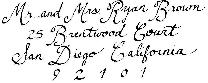 Mr. and Mrs. Ryan Brown
25 Brentwood Court
San Diego California
92101